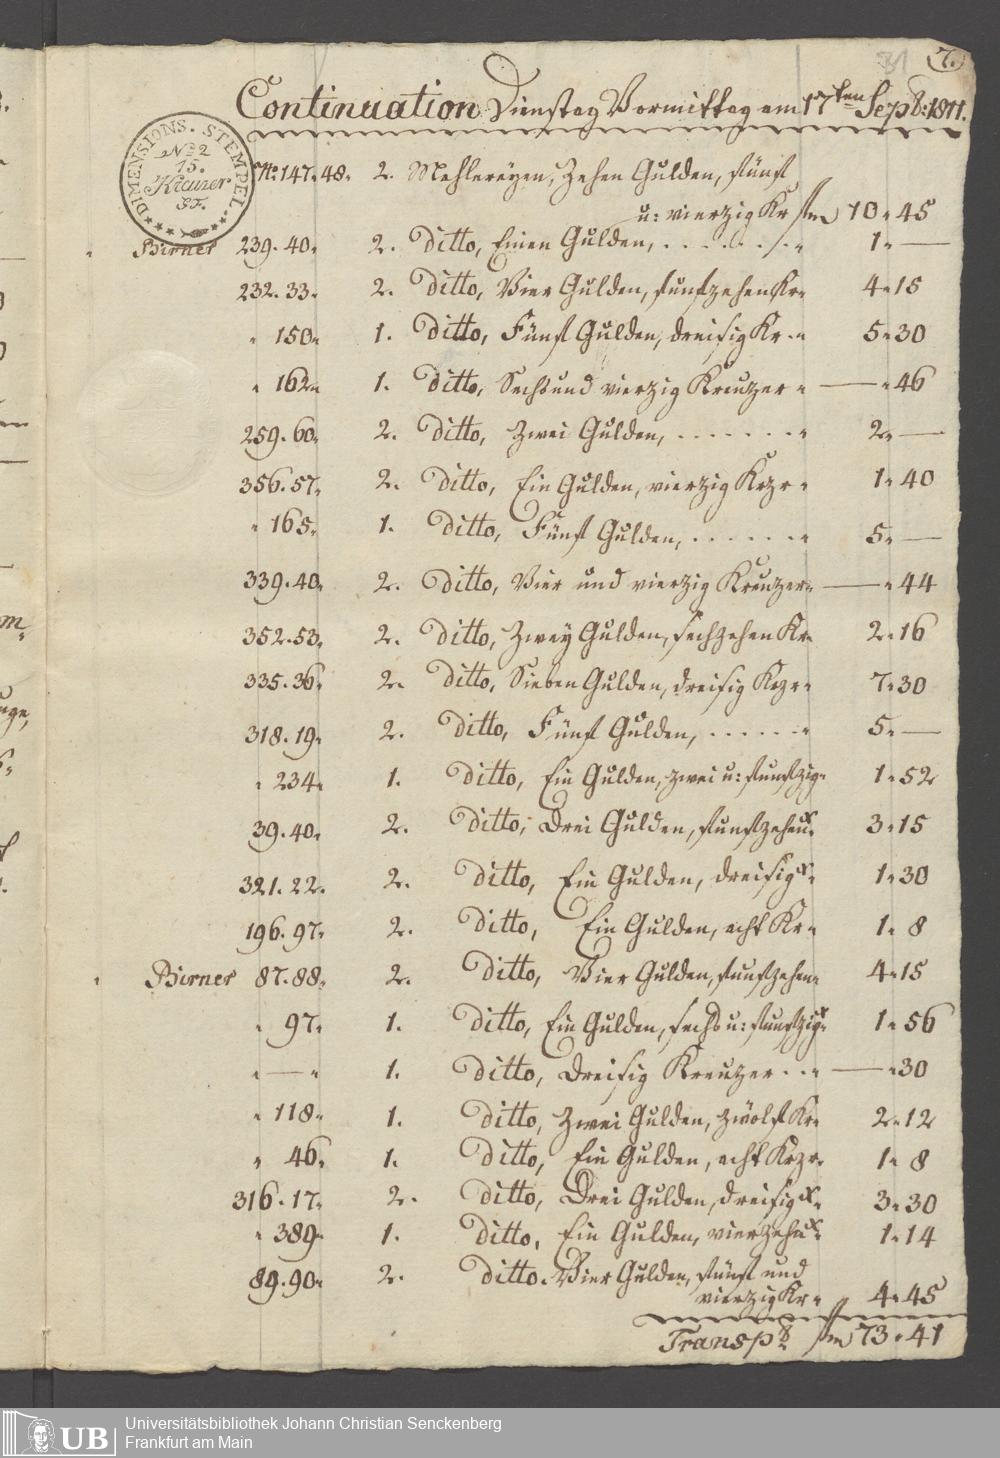 7.
Continuation Dienstag Vormittag am 17ten Sept: 1811.
DIMENSIONS. STEMPEL.
No 2
15.
Kreuzer
No. 147. 48. 2. Mahlereyen, Zehen Gulden, fünf
u: vierzig Kr fl 10 " 45
Birner 239. 40 " 2. ditto, Einen Gulden, . . . . . . " 1 " —
232. 33 " 2. ditto, Vier Gulden, funfzehen Kr " 4 " 15
" 150 " 1. ditto, Fünf Gulden, dreisig Kr . " 5 " 30
" 162 " 1. ditto, Sechs und vierzig Kreuzer " — " 46
259. 60 " 2. ditto, Zwei Gulden, . . . . . . . " 2 " —
356. 57 " 2. ditto, Ein Gulden, vierzig Krzr " 1 " 40
" 165 " 1. ditto, Fünf Gulden, . . . . . . " 5 " —
339. 40 " 2. ditto, Vier und vierzig Kreuzer " — " 44
352. 53 " 2. ditto, Zwey Gulden, sechzehen Kr " 2 " 16
335. 36 " 2. ditto, Sieben Gulden, dreisig Krzr " 7 " 30
318. 19 " 2. ditto, Fünf Gulden, . . . . . . " 5 " —
" 234 " 1. ditto, Ein Gulden, zwei u: funfzig " 1 " 52
39. 40 " 2. ditto, Drei Gulden, funfzehen x " 3 " 15
321. 22 " 2. ditto, Ein Gulden, dreisig x " 1 " 30
196. 97 " 2. ditto, Ein Gulden, acht Kr " 1 " 8
" Birner 87. 88 " 2. ditto, Vier Gulden, funfzehen " 4 " 15
" 97 " 1. ditto, Ein Gulden, sechs u: funfzig x " 1 " 56
" — " 1. ditto, Dreisig Kreuzer . . " — " 30
" 118 " 1. ditto, Zwei Gulden, zwölf Kr " 2 " 12
" 46 " 1. ditto, Ein Gulden, acht Krzr " 1 " 8
316. 17 " 2. ditto, Drei Gulden, dreisig x " 3 " 30
" 389 " 1. ditto, Ein Gulden, vierzehn x " 1 " 14
89. 90 " 2. ditto. Vier Gulden, fünf und
vierzig Kr " 4 " 45
Transpt fl 73 " 41
UB Universitätsbibliothek Johann Christian Senckenberg
Frankfurt am Main